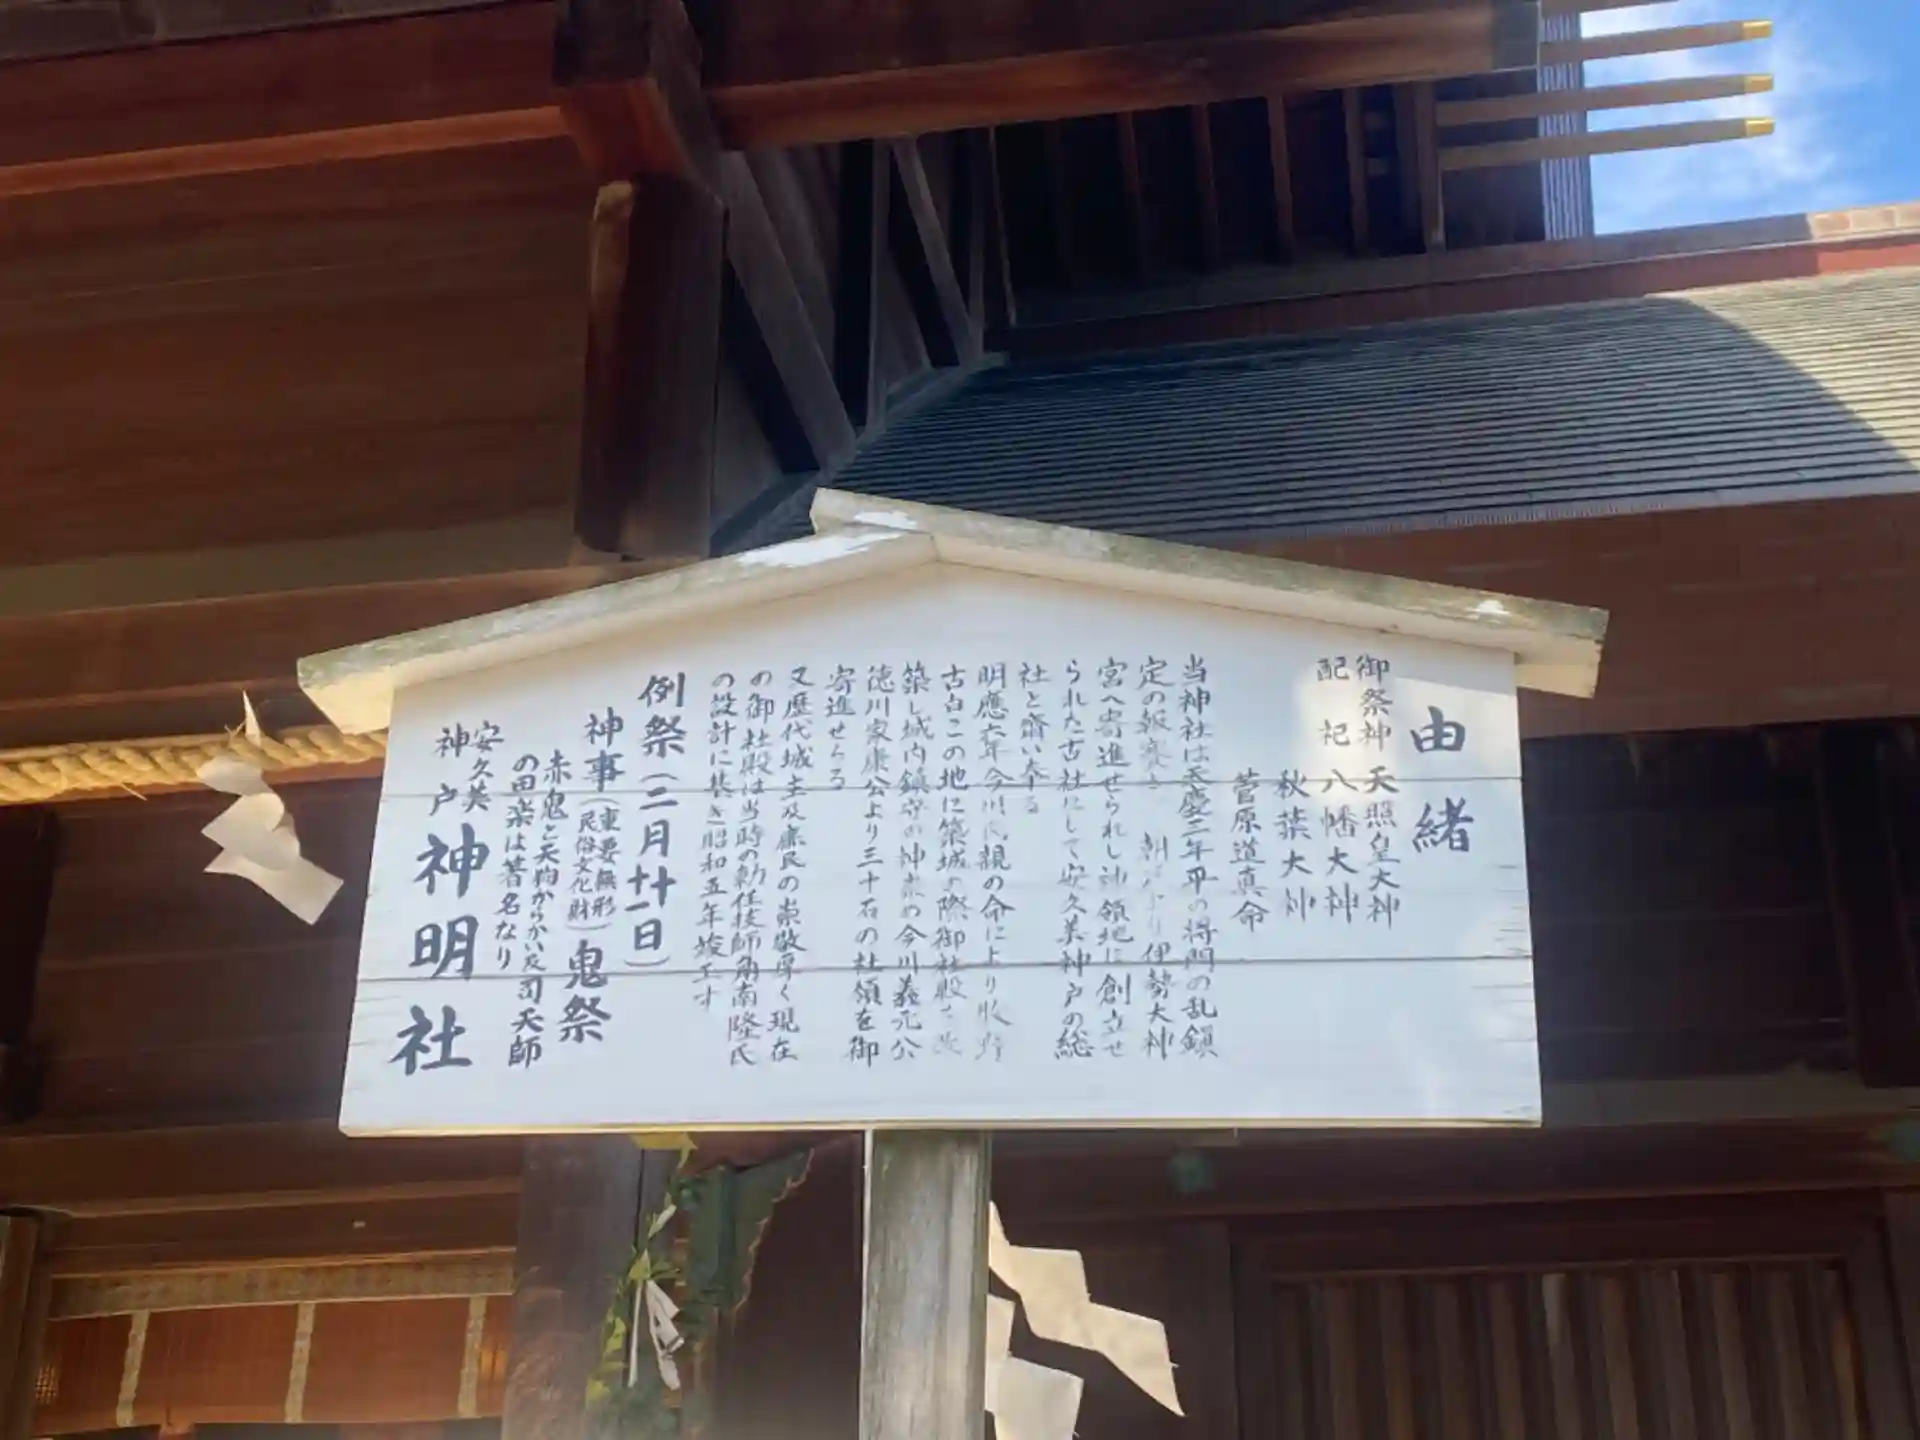 由緒
御祭神 天照皇大神
配祀 八幡大神
秋葉大神
菅原道真命
当神社は天慶三年平の将門の乱鎮
定の報賽に 朝廷より伊勢大神
宮へ寄進せられし神領地に創立せ
られた古社にして安久美神戸の総
社と齋い奉る
明應六年今川氏親の命により牧野
古白この地に築城の際御社殿を改
築し城内鎮守の神と崇め今川義元公
徳川家康公より三十石の社領を御
寄進せらる
又歴代城主及庶民の崇敬厚く現在
の御社殿は当時の勅任技師角南隆氏
の設計に基き昭和五年竣工す
例祭(二月十一日)
神事(重要無形民俗文化財)鬼祭
赤鬼と天狗からかい及司天師
の田楽は著名なり
安久美
神戸 神明社